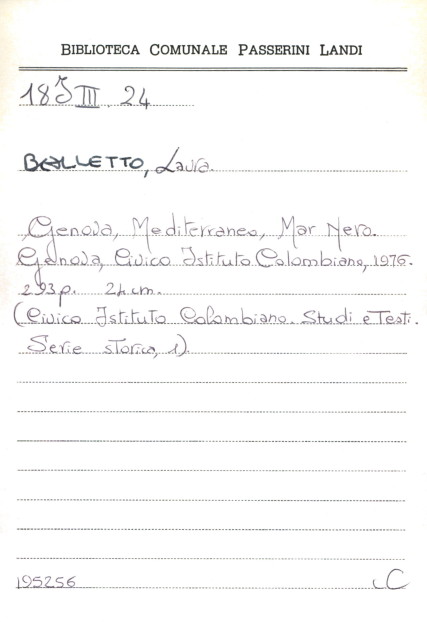 BIBLIOTECA COMUNALE PASSERINI LANDI
18 J III. 24
BALLETTO, Laura.
Genova, Mediterraneo, Mar Nero.
Genova, Civico Istituto Colombiano, 1976.
293 p. 24 cm.
(Civico Istituto Colombiano. Studi e Testi.
Serie storica, 1).
195256 C